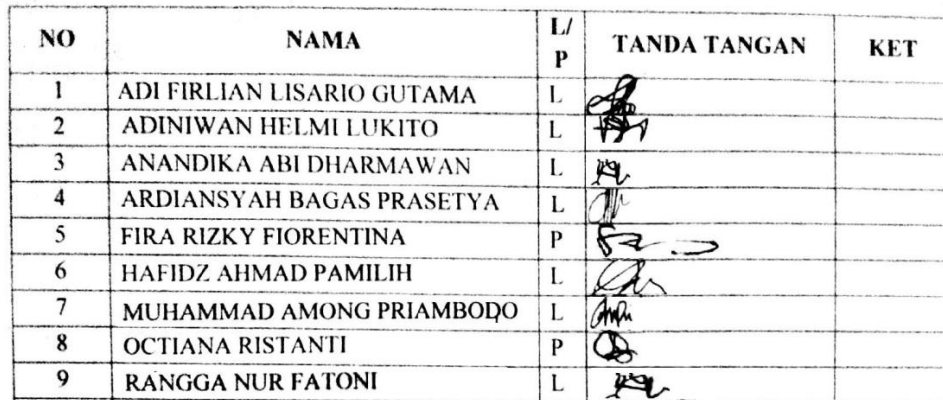 NO NAMA L/P TANDA TANGAN KET
1 ADI FIRLIAN LISARIO GUTAMA L
2 ADINIWAN HELMI LUKITO L
3 ANANDIKA ABI DHARMAWAN L
4 ARDIANSYAH BAGAS PRASETYA L
5 FIRA RIZKY FIORENTINA P
6 HAFIDZ AHMAD PAMILIH L
7 MUHAMMAD AMONG PRIAMBODO L
8 OCTIANA RISTANTI P
9 RANGGA NUR FATONI L